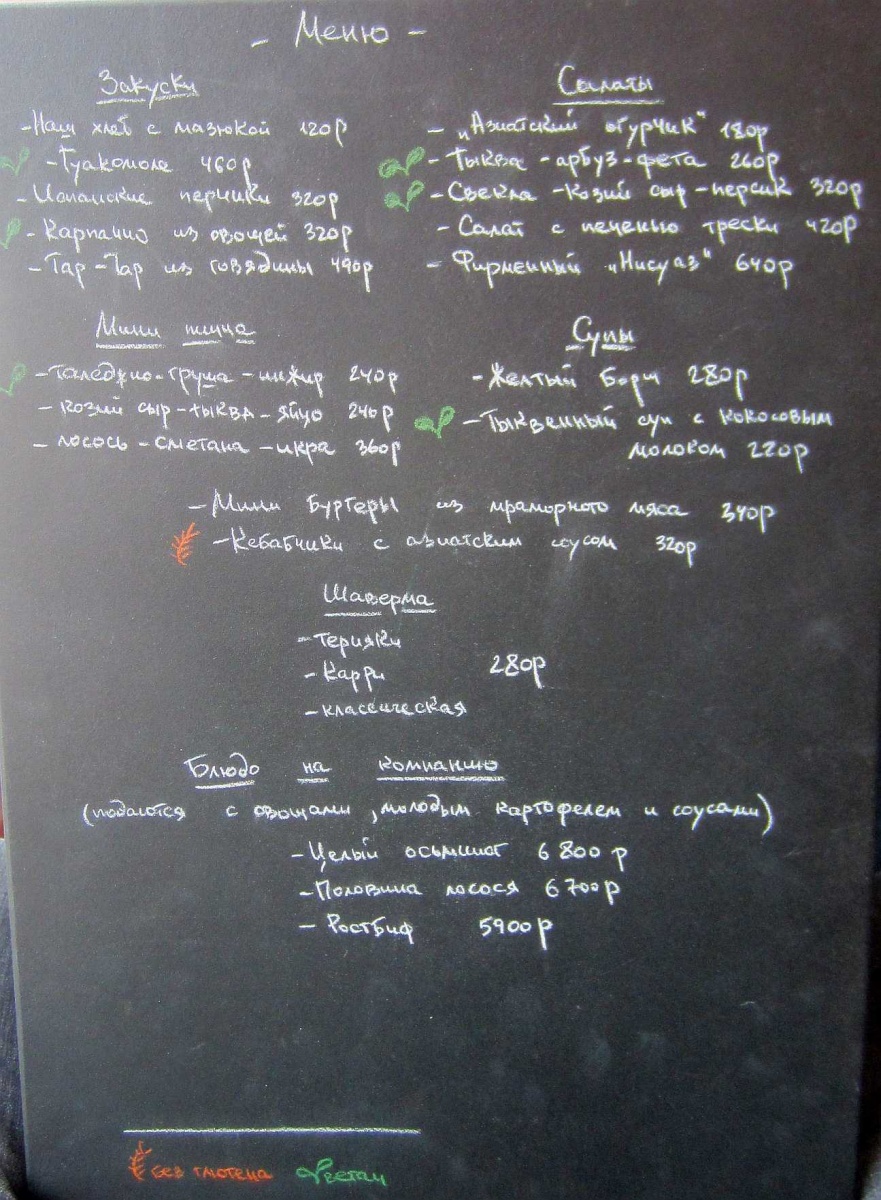 - Меню -
Закуски
- Наш хлеб с мазюкой 120р
- Гуакомоле 460р
- Испанские перчики 320р
- Карпаччо из овощей 320р
- Тар-Тар из говядины 490р
Салаты
- „Азиатский огурчик" 180р
- Тыква - арбуз - фета 260р
- Свекла - козий сыр - персик 320р
- Салат с печенью трески 420р
- Фирменный „Нисуаз" 640р
Мини пицца
- Таледжио - груша - инжир 240р
- козий сыр - тыква - яйцо 240р
- лосось - сметана - икра 360р
Супы
- Желтый борщ 280р
- Тыквенный суп с кокосовым
молоком 220р
- Мини бургеры из мраморного мяса 340р
- Кебабчики с азиатским соусом 320р
Шаверма
- терияки
- Карри 280р
- классическая
Блюдо на компанию
(подаются с овощами, молодым картофелем и соусами)
- Целый осьминог 6 800 р
- Половина лосося 6 700р
- Ростбиф 5900р
без глютена веган